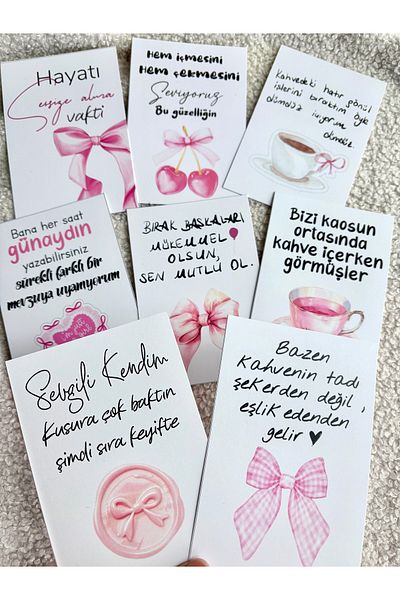 Hayatı
Sessize alma
vakti
Hem içmesini
Hem çekmesini
Seviyoruz
Bu güzelliğin
Kahvedeki hatır gönül
işlerini bıraktım öyle
dümdüz içiyorum
Bana her saat
günaydın
yazabilirsiniz
sürekli farklı bir
mevzuya uyanıyorum
BIRAK BAŞKALARI
MÜKEMMEL
OLSUN,
SEN MUTLU OL.
Bizi kaosun
ortasında
kahve içerken
görmüşler
Sevgili Kendim
Kusura çok baktın
şimdi sıra keyifte
Bazen
Kahvenin tadı
şekerden değil,
eşlik edenden
gelir ♥